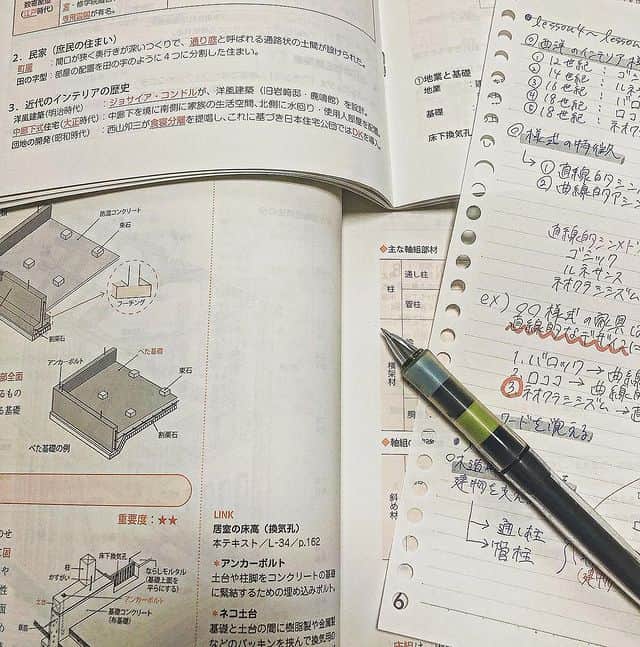 (江戸時代)
専用空間が有名。
2. 民家（庶民の住まい）
町屋 ：間口が狭く奥行きが深いつくりで、通り庭と呼ばれる通路状の土間が設けられた。
田の字型：部屋の配置を田の字のように4つに分割した住まい。
3. 近代のインテリアの歴史
洋風建築(明治時代) ：ジョサイア・コンドルが、洋風建築（旧岩崎邸・鹿鳴館）を設計。
中廊下式住宅(大正時代)：中廊下を境に南側に家族の生活空間、北側に水回り・使用人部屋を配置。
団地の開発(昭和時代) ：西山夘三が食寝分離を提唱し、これに基づき日本住宅公団ではDKを導入
①地業と基礎
地業
基礎
床下換気孔
防湿コンクリート
束石
フーチング
割栗石
アンカーボルト
べた基礎
束石
割栗石
べた基礎の例
重要度：★★
床下換気孔
柱
かすがい
ならしモルタル
(基礎上面を
平らにする)
土台
アンカーボルト
基礎コンクリート
(布基礎)
LINK
居室の床高（換気孔）
本テキスト／L-34／p.162
*アンカーボルト
土台や柱脚をコンクリートの基礎
に緊結するための埋め込みボルト。
*ネコ土台
基礎と土台の間に樹脂製や金属製
などのパッキンを挟んで換気
◆主な軸組部材
柱
通し柱
管柱
横架材
胴
◆軸組
斜め材
lesson4〜lesson
西洋のインテリア様
① 12世紀：ゴ
② 14世紀：ルネ
③ 16世紀：バ
④ 18世紀：ロココ
⑤ 18世紀：ネオク
様式の特徴
↳ ① 直線的シン
② 曲線的アシン
直線的シンメト
ゴシック
ルネサンス
ネオクラシシズム
ex) 〇〇様式の家具
直線的なデザイン
1. バロック→曲線
2. ロココ→曲線
③ ネオクラシシズム→直
ワードを覚える。
建物を支え
→ 通し柱
→ 管柱
6